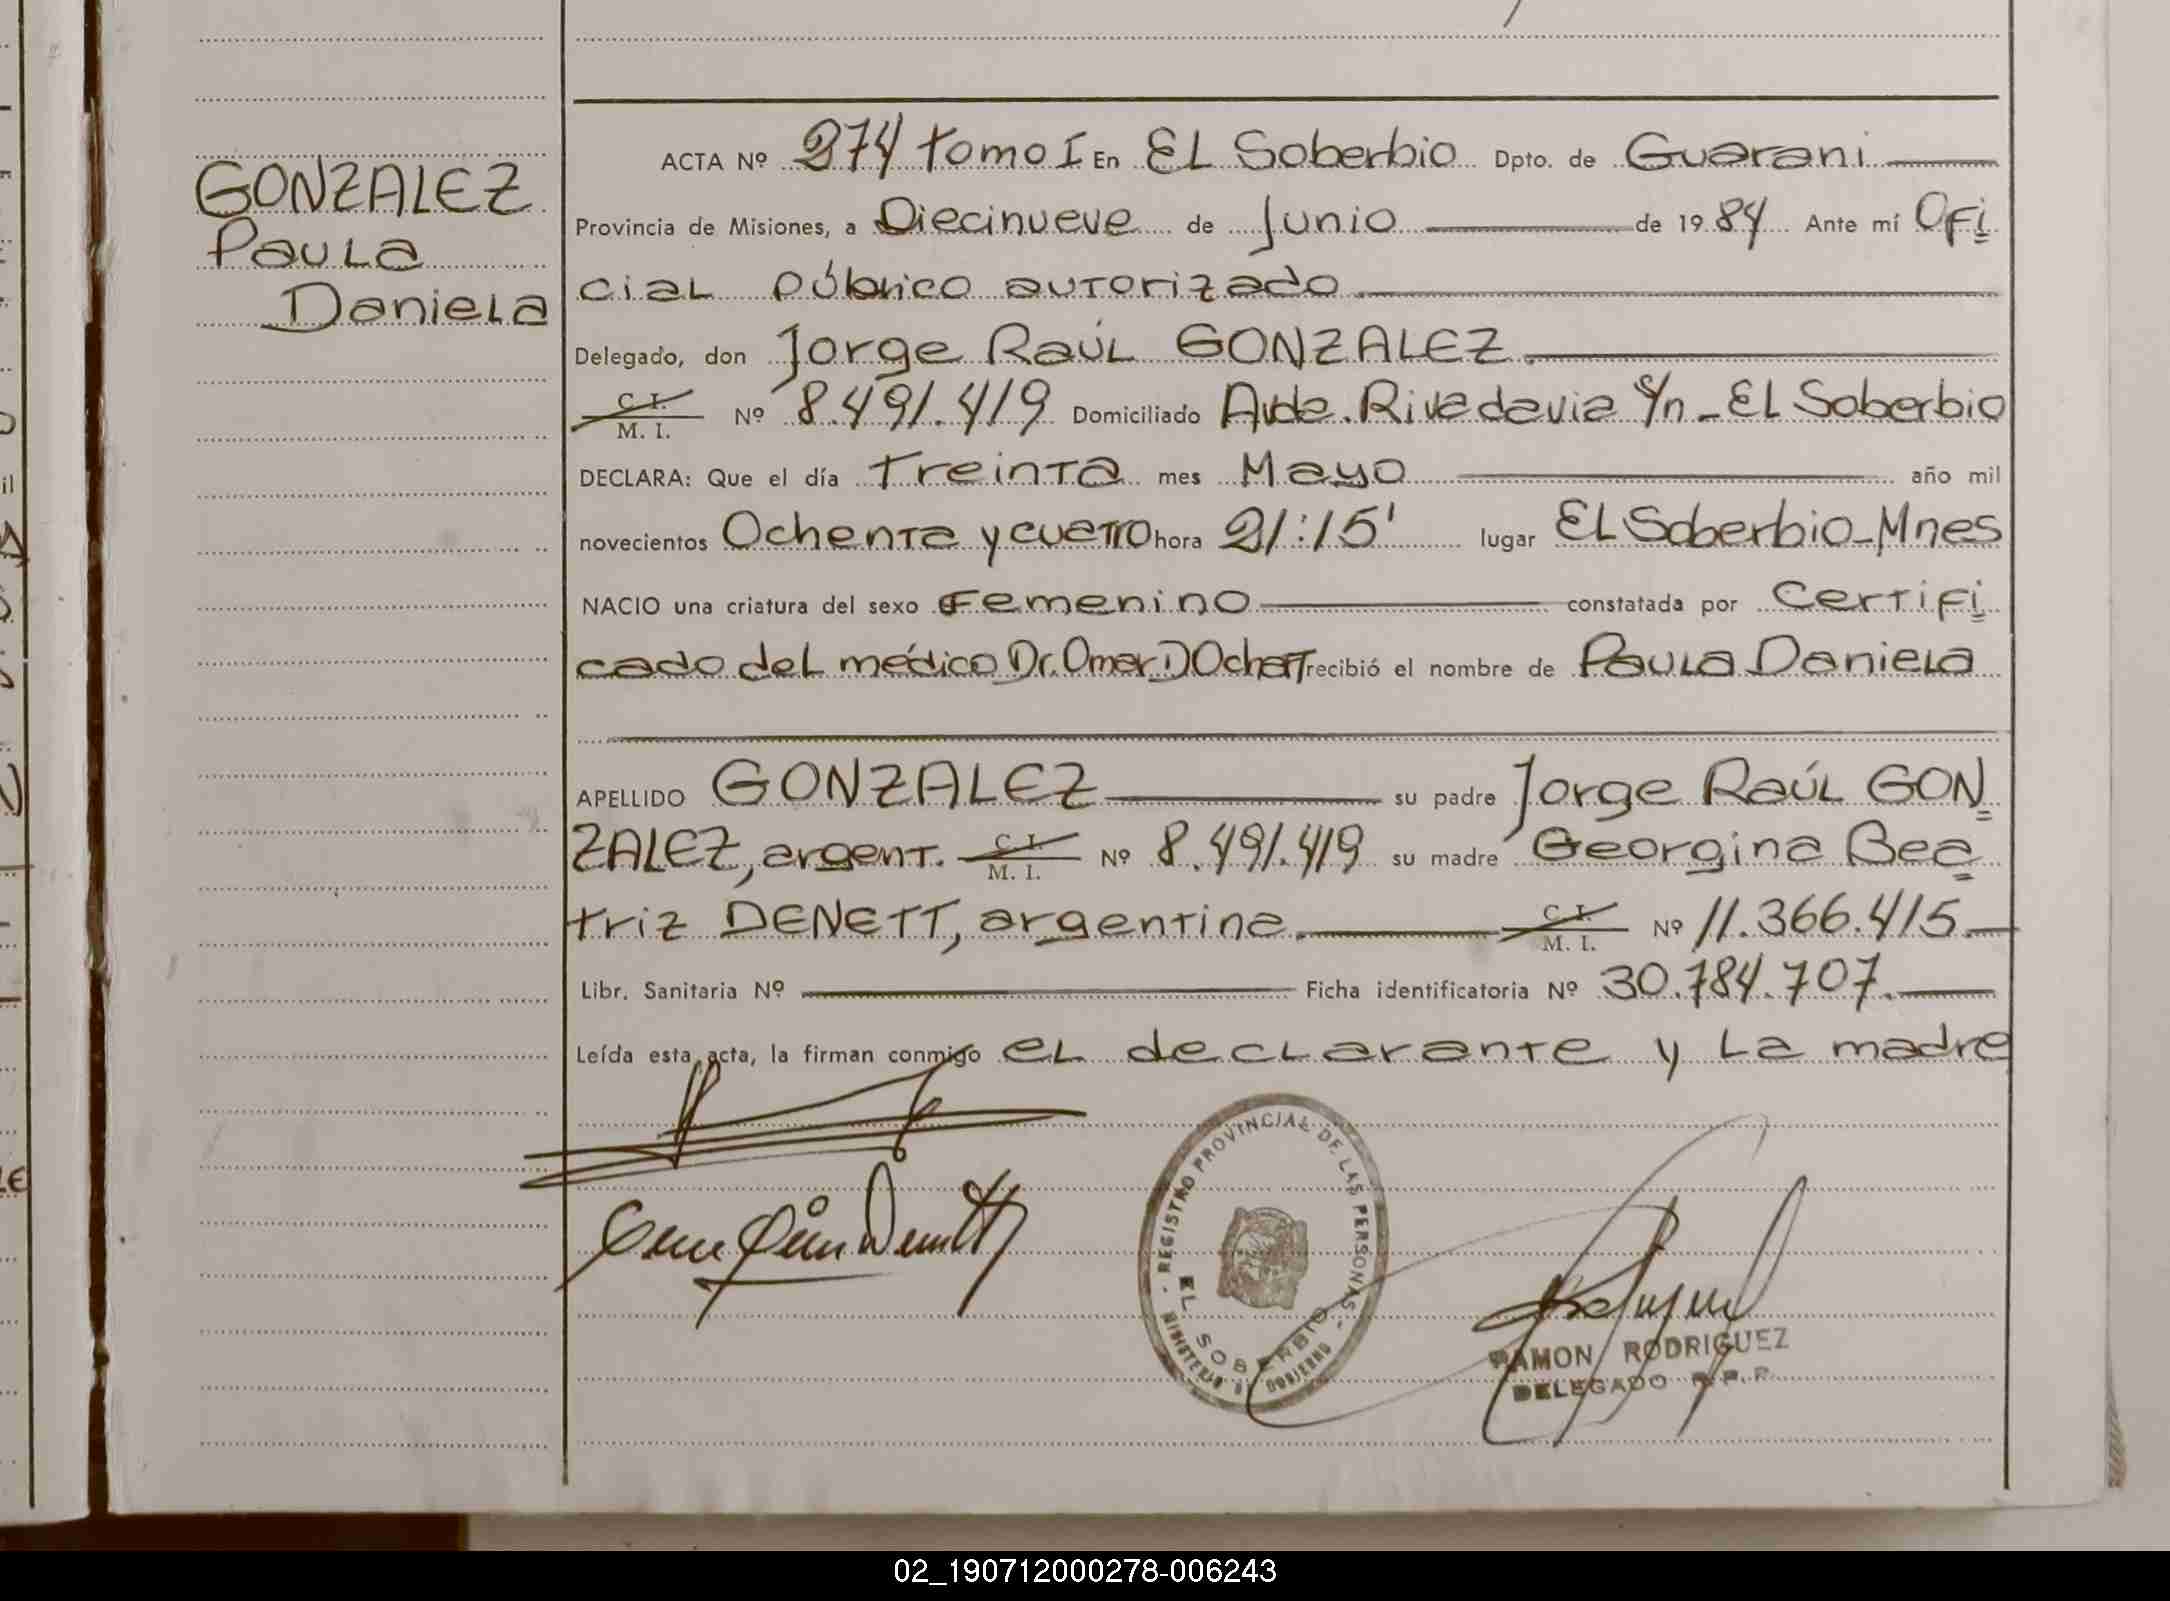 GONZALEZ
Paula
Daniela
ACTA Nº 274 tomo I En EL Soberbio Dpto. de Guarani
Provincia de Misiones, a Diecinueve de Junio de 1984 Ante mí Ofi
cial público autorizado
Delegado, don Jorge Raúl GONZALEZ.
C. I.
M. I. Nº 8.491.419 Domiciliado Avda. Rivadavia s/n - EL Soberbio
DECLARA: Que el día Treinta mes Mayo año mil
novecientos Ochenta y cuatro hora 21:15' lugar EL Soberbio - Mnes
NACIO una criatura del sexo Femenino constatada por Certifi
cado del médico Dr. Omar D Ochatt recibió el nombre de Paula Daniela
APELLIDO GONZALEZ su padre Jorge Raúl GON
ZALEZ, argent. C. I. M. I. Nº 8.491.419 su madre Georgina Bea
triz DENETT, argentina. C. I. M. I. Nº 11.366.415.
Libr. Sanitaria Nº Ficha identificatoria Nº 30.784.707.
Leída esta acta, la firman conmigo el declarante y la madre
- REGISTRO PROVINCIAL DE LAS PERSONAS -
EL SOBERBIO
MINISTERIO DE GOBIERNO
RAMON RODRIGUEZ
DELEGADO R.P.P.
02_190712000278-006243